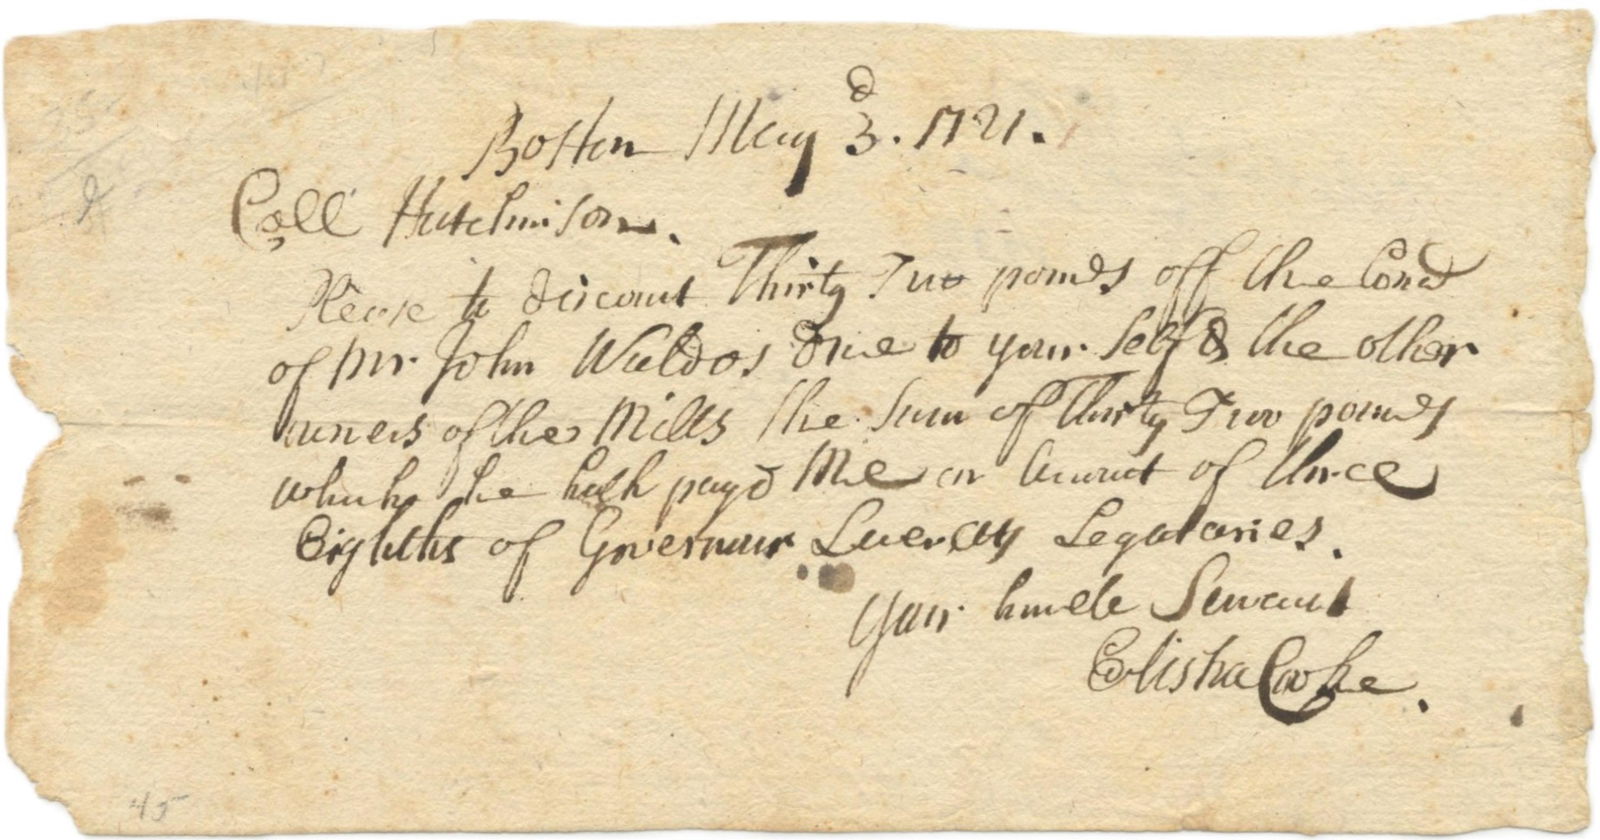 Boston May 3d. 1721.
Coll Hutchinson.
Please to discount Thirty Two pounds off the Bond
of Mr. John Waldos due to your Self & the other
owners of the Mills the Sum of Thirty Two pounds
which he hath payd Me on Account of three
Eighths of Governour Leveretts Legataries.
Your humble Servant
Elisha Cooke.
45